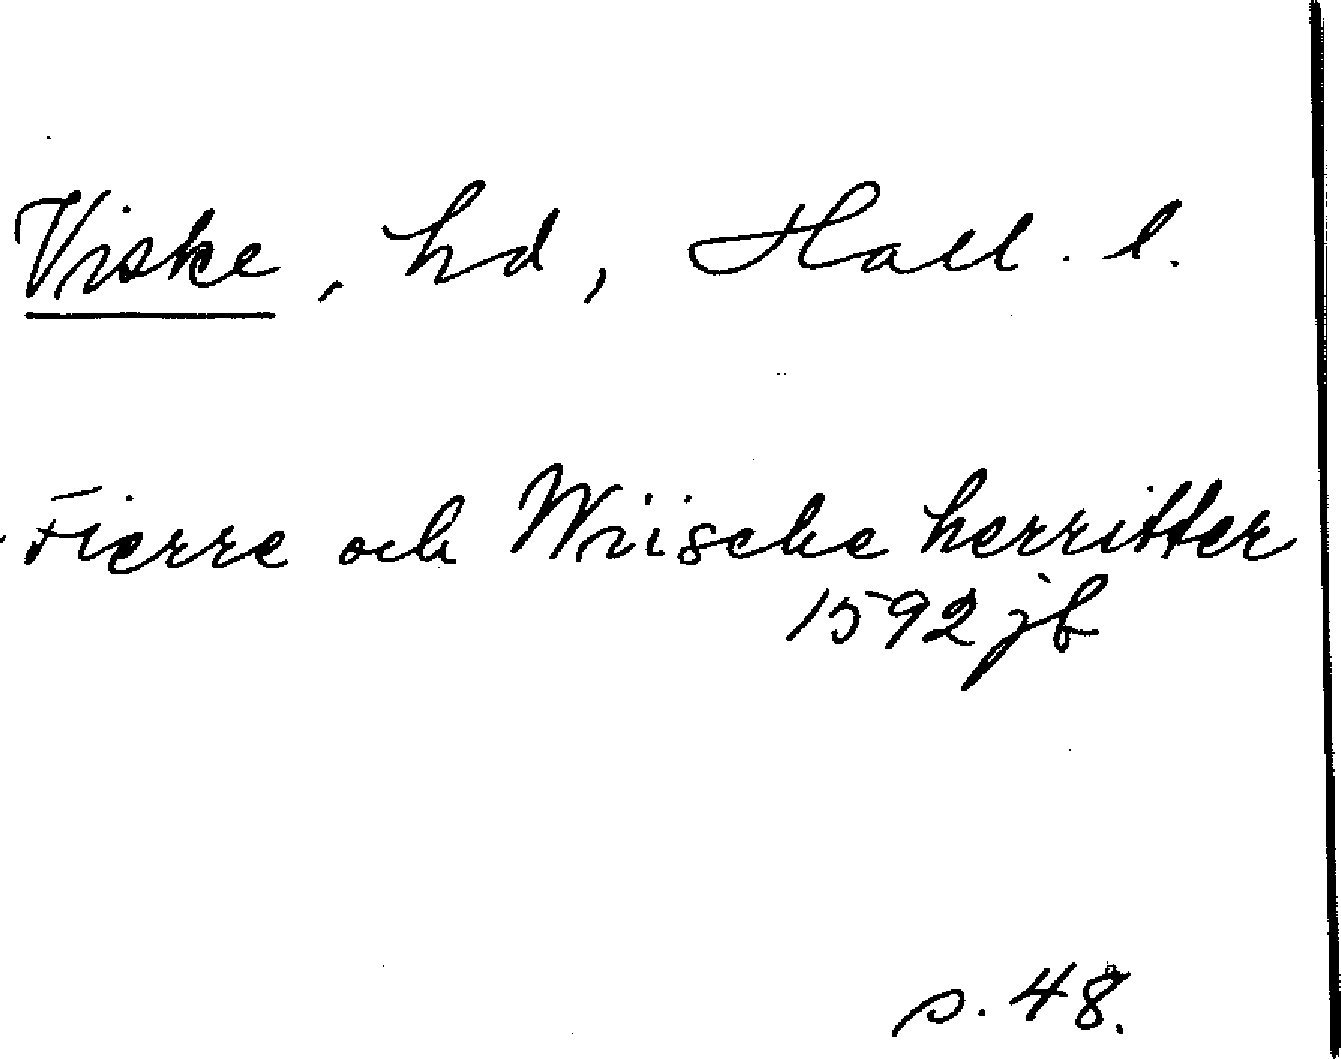 Viske, hd, Hall. l.
Fierre och Wiische herritter
1592 jb
s. 48.